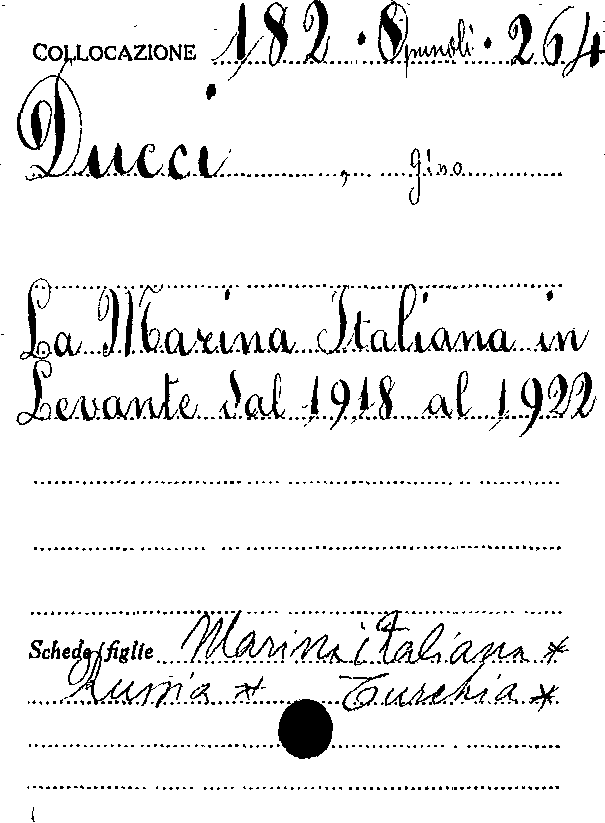 COLLOCAZIONE 182 · Opuscoli · 264
Ducci, Gino
La Marina Italiana in
Levante dal 1918 al 1922
Schede figlie Marina italiana *
Russia * Turchia *